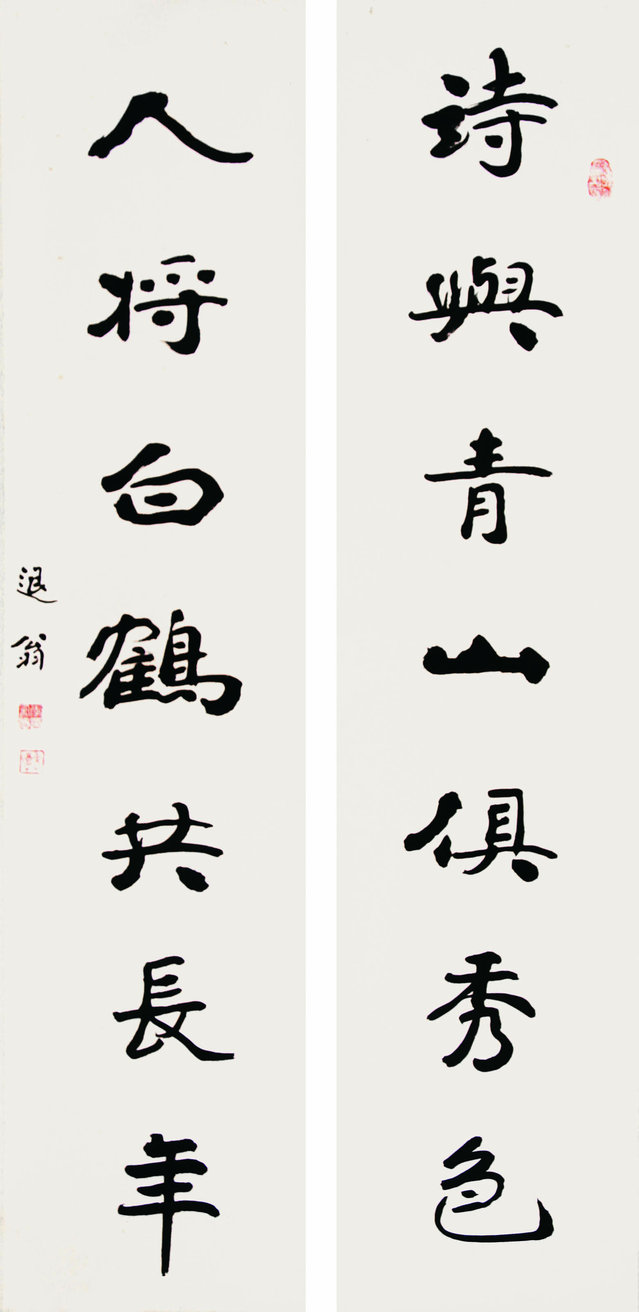 詩與青山俱秀色
人将白鶴共長年
退翁